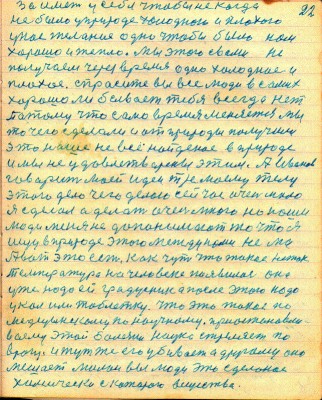 22
За имет у себя чтобы некогда
не было у природе холодного и плохого
у нас желание одно чтобы было нам
хорошо и тепло. Мы этого сами не
получаем через время одно холодное и
плохое. спросите вы все люди в самих
хорошо ли бывает тебя всегда нет
Потому что само время меняется мы
то чего сделали и от природы получили
это наше не всё найденое в природе
и мы не удовлетворены этим. Я Иванов
говорит моей идеи т не моему телу
этого дело чего делаю сей час очен мало
Я сделал а делат очен много но наши
люди меня не допонимают то что я
ищу в природе этого между нами не ма
А вот это ест. Как чут что такое не так
Температура на человеке повышас она
уже надо ей градусник а после этого надо
укол или таблетку. что это такое по
медецинскому по научному. приостановлен
ваему этой болезни наука стреляет по
врагу. и тут же его убивает а другому оно
мешает милаи вы люди это сделаное
химически с которого вещества.